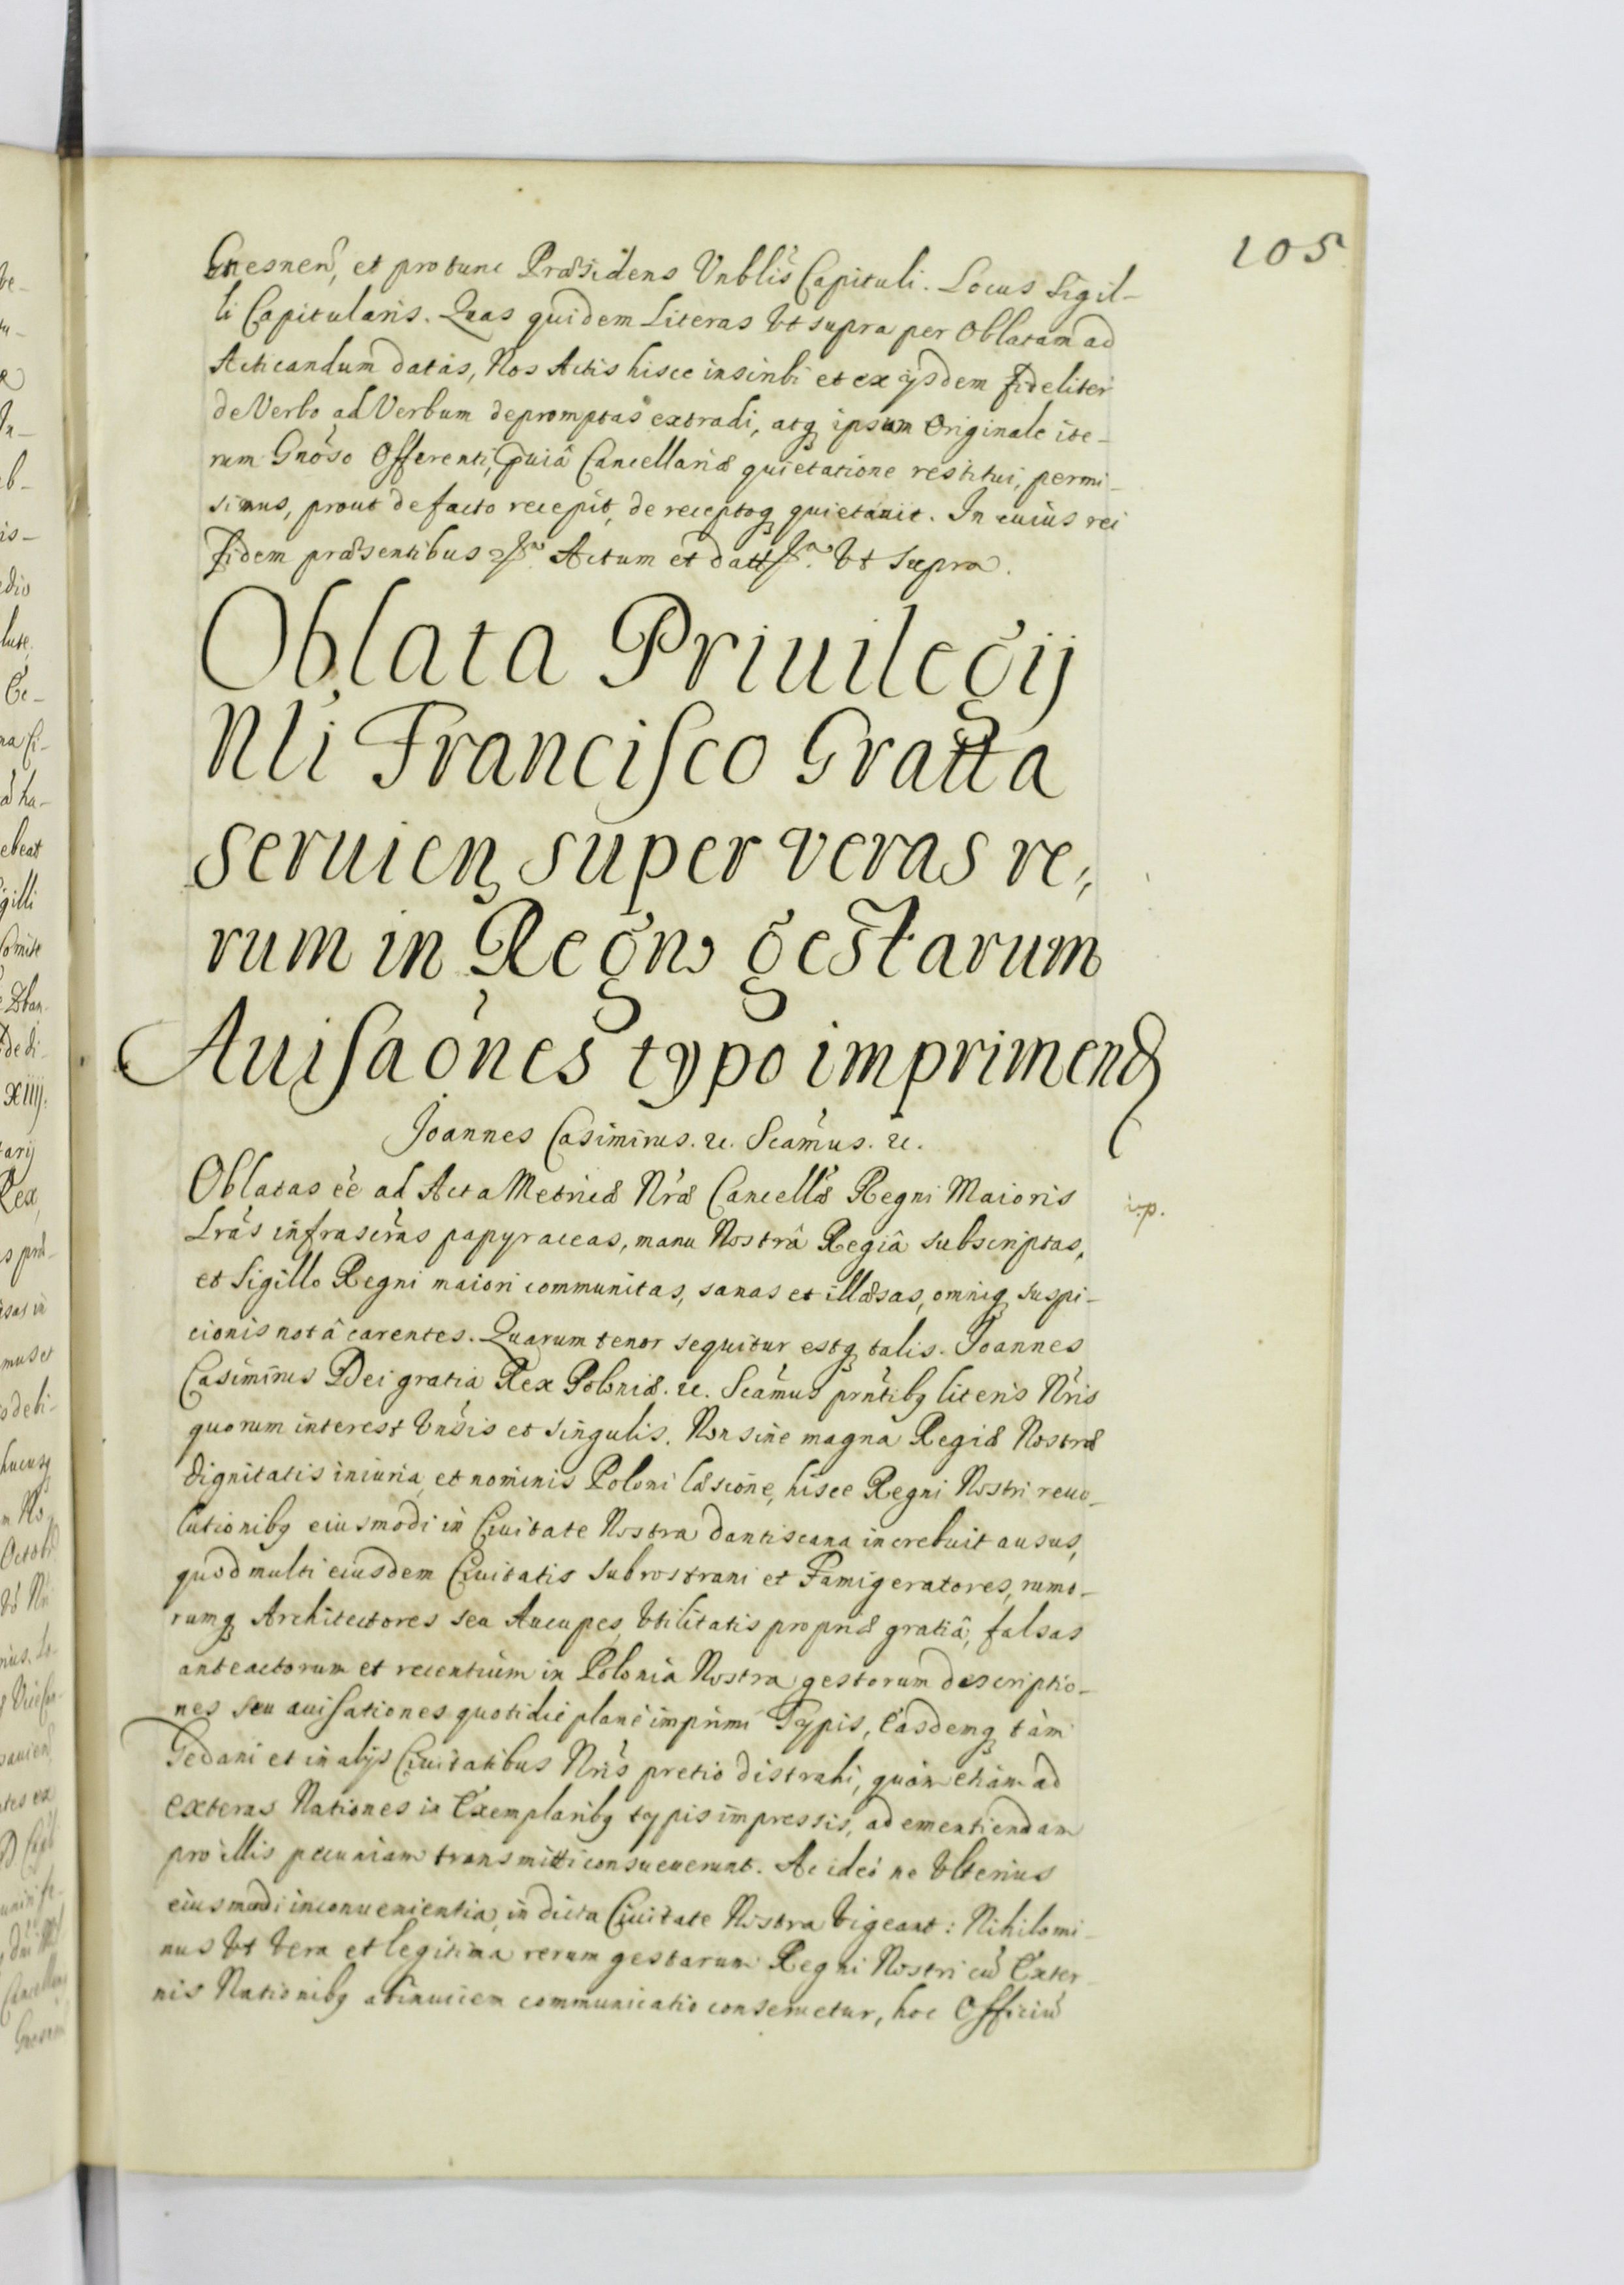 105
Gnesnen, et protunc Præsidens Vnblis Capituli. Locus Sigil-
li Capitularis. Quas quidem Literas Vt supra per Oblatam ad
Acticandum datas, Nos Actis hisce inscribi et ex ijsdem fideliter
de Verbo ad Verbum depromptas extradi, atq ipsum Originale ite-
rum Gnoso Offerenti, Cancellariæ quietatione restitui, permi-
simus, prout de facto recepit, de receptoq quietauit. In cuius rei
Fidem præsentibus Actum et datt Vt Supra.
Oblata Priuilegij
Nli Francisco Gratta
seruien super veras re,,
rum in Regno gestarum
Auisaones typo imprimend
Joannes Casimirus. rc. Scamus. rc.
Oblatas ee ad Acta Metricæ Nræ Cancellæ Regni Maioris
Lras infrascras papyraceas, manu Nostrâ Regiâ subscriptas,
et Sigillo Regni maiori communitas, sanas et illæsas, omniq suspi-
cionis notâ carentes. Quarum tenor sequitur estq talis. Joannes
Casimirus Dei gratia Rex Poloniæ. rc. Scamus prntibq literis Nris
quorum interest Vnsis et singulis. Non sine magna Regiæ Nostræ
dignitatis iniuria, et nominis Poloni læsione, hisce Regni Nostri reuo-
lutionibq eiusmodi in Ciuitate Nostra dantiscana increbuit ausus,
quod multi eiusdem Ciuitatis Subrostrani et Famigeratores, rumo-
rumq Architectores seu Aucupes, Vtilitatis propriæ gratiâ, falsas
anteactorum et recentium in Polonia Nostra gestorum descriptio-
nes seu auisationes quotidie planè imprimi Typis, Easdemq tàm
Gedani et in alijs Ciuitatibus Nris pretio distrahi, quàm etiàm ad
exteras Nationes in Exemplaribq typis impressis, ad ementiendam
pro illis pecuniam transmitti consueuerunt. Ac ideó ne Vlterius
eiusmodi inconuenientia, in dicta Ciuitate Nostra Vigeant: Nihilomi-
nus Vt Vera et legitima rerum gestarum Regni Nostri cu Exter-
nis Nationibq abinuicem communicatio conseruetur, hoc Officiu
i.p.